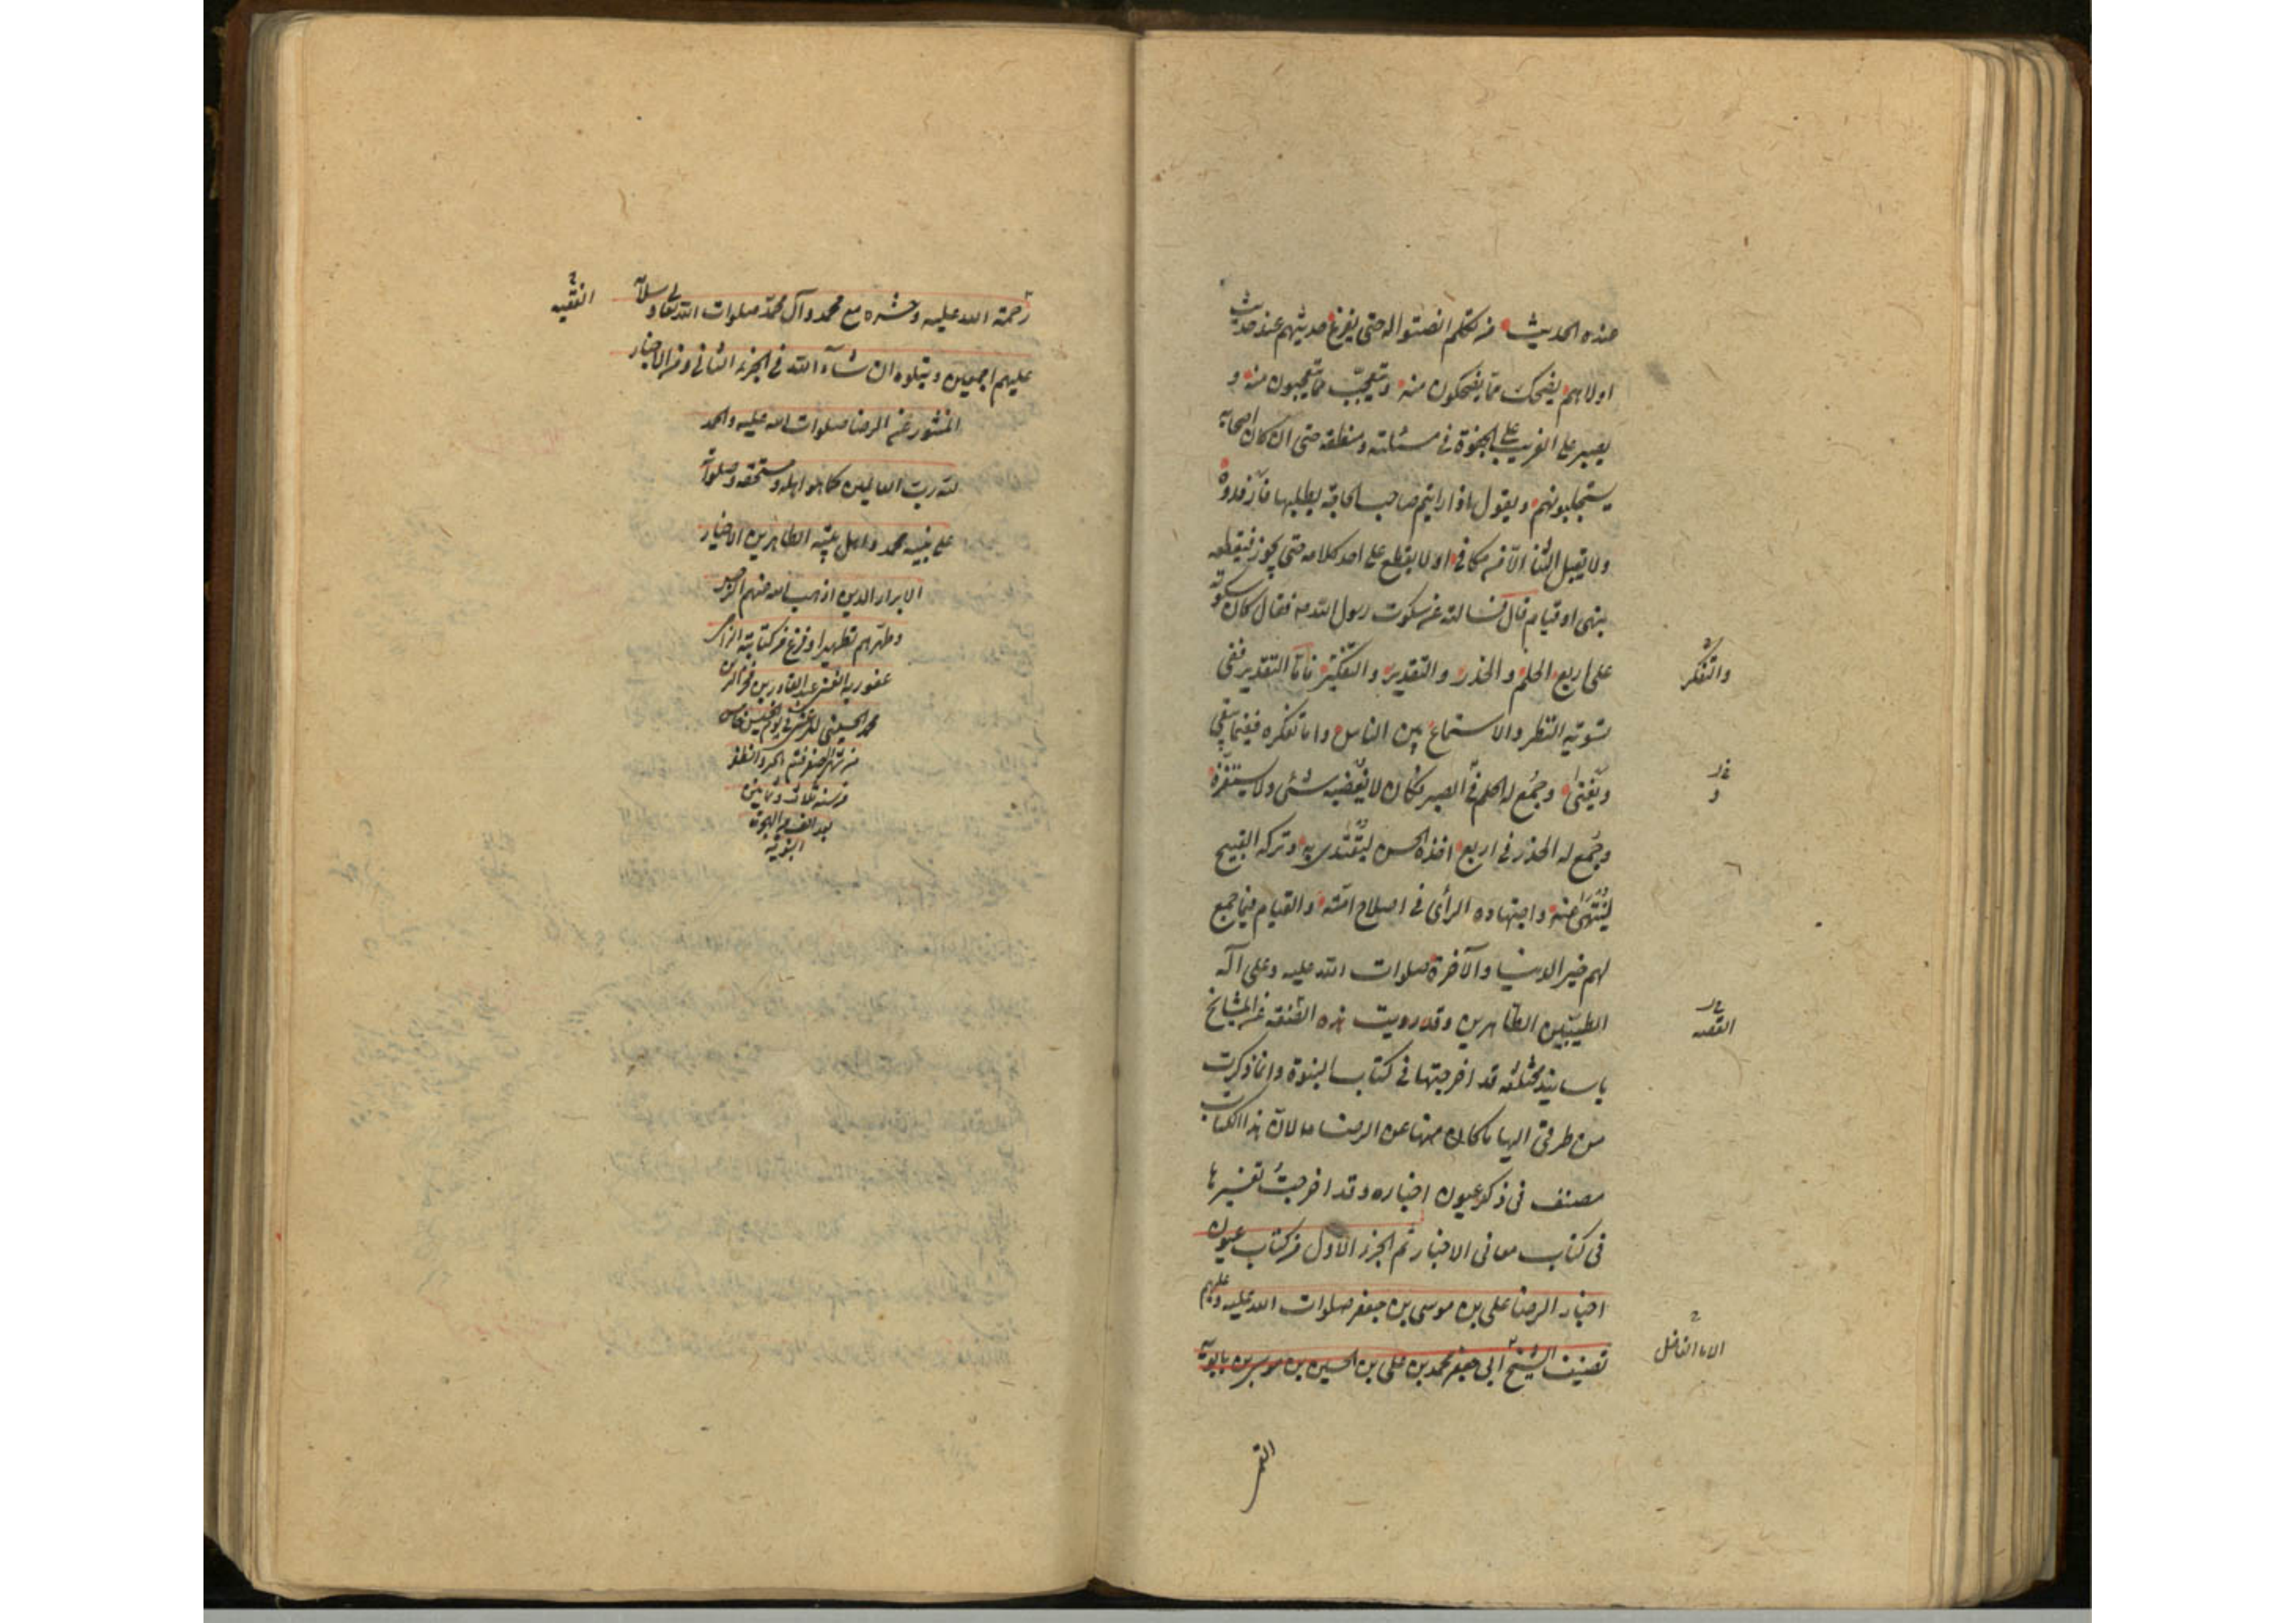 عنده الحديث من تكلم انصتوا له حتى يفرغ حديثهم عنده حديث
اولاهم يضحك مما يضحكون منه وتعجّب مما يتعجبون منه و
يصبر على الغريب على الجفوة في مسئلته ومنطقه حتى ان كان اصحابه
يستجلبونهم ويقول اذا رايتم صاحب الحاجة يطلبها فارفدوه
ولا يقبل الثنا الّا من مكافي ولا يقطع على احد كلامه حتى يجوز فيقطعه
بنهى او قيام قال فسالته عن سكوت رسول الله ص فقال كان سكوته
على اربع الحلم والحذر والتقدير والتفكير فامّا التقدير ففى
والتفكر
تسوية النظر والاستماع بين الناس واما تفكره ففيما يبقى
ويفنى وجُمع له الحلم في الصبر فكان لا يغضبه شئ ولا يستفزّه
وجُمع له الحذر فى اربع اخذه الحسن ليقتدى به وتركه القبيح
لينتهى عنه واجتهاده الرأى فى اصلاح امّته والقيام فيما جمع
لهم خير الدنيا والآخرة صلوات الله عليه وعلى آله
الطيبين الطاهرين وقد رويت هذه الصفة عن المشايخ
القصه
باسانيد مختلفه قد اخرجتها فى كتاب النبوة وانما ذكرت
من طرقى اليها ما كان منها عن الرضا ع لان هذا الكتاب
مصنف فى ذكر عيون اخباره وقد اخرجتُ تفسيرها
فى كتاب معانى الاخبار تم الجزء الاول من كتاب عيون
اخبار الرضا على بن موسى بن جعفر صلوات الله عليه وعليهم
تصنيف الشيخ ابى جعفر محمد بن على بن الحسين بن موسى بن بابويه
الفاضل
القمى
رحمة الله عليه وحشره مع محمد وآل محمّد صلوات الله تعالى وسلامه
الفقيه
عليهم اجمعين ويتلوه ان شآء الله فى الجزء الثانى ومن الاخبار
المنثور عن الرضا صلوات الله عليه والحمد
لله ربّ العالمين كما هو اهله ومستحقه وصلواته
على نبيه محمد واهل بيته الطاهرين الاخيار
الابرار الذين اذهب الله عنهم الرجس
وطهّرهم تطهيرا وفرغ من كتابته الراجى
عفو ربه الغنى عبد القادر بن
محمد الحسينى فى يوم الخميس خامس
من شهر صفر ختم بالخير والظفر
من سنة ثلاث وثمانين
بعد الف من الهجرة
النبويه